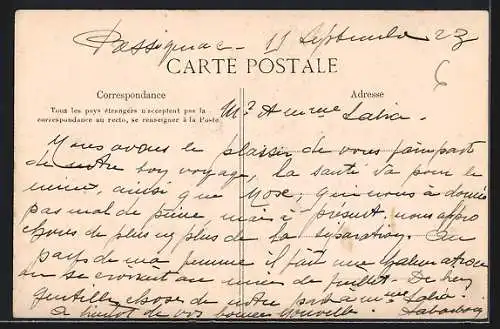 Passignac - 11 Septembre 23
CARTE POSTALE
Correspondance
Adresse
Tous les pays étrangers n'acceptent pas la
correspondance au recto, se renseigner à la Poste
Mr & mme Labia.
Nous avons le plaisir de vous faire part
de notre bon voyage, la santé va pour le
mieux, ainsi que qui nous a donné
pas mal de peine, mais à présent nous appro
chons de plus en plus de la séparation. Au
pays de ma femme il fait une
on se croirait au mois de juillet. De bien
gentilles choses de notre part à mme Labia.
A bientôt de vos bonnes nouvelles.